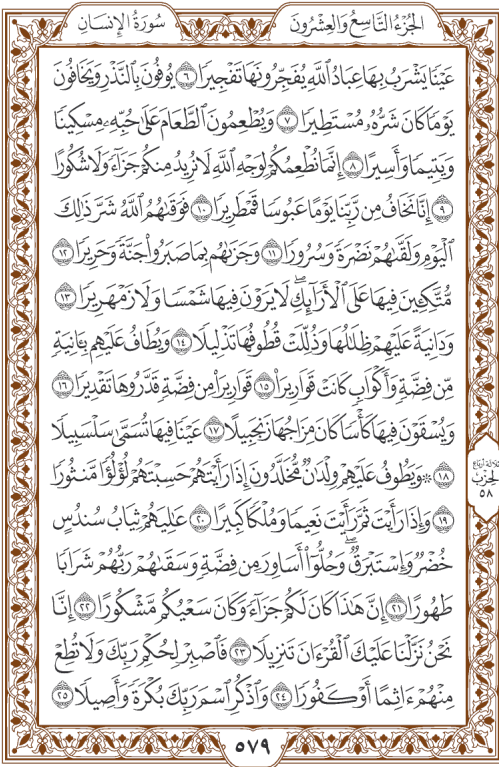 الجُزْءُ التَّاسِعُ وَالعِشْرُونَ
سُورَةُ الإِنسَانِ
عَيْنًا يَشْرَبُ بِهَا عِبَادُ ٱللَّهِ يُفَجِّرُونَهَا تَفْجِيرًا ٦ يُوفُونَ بِٱلنَّذْرِ وَيَخَافُونَ
يَوْمًا كَانَ شَرُّهُۥ مُسْتَطِيرًا ٧ وَيُطْعِمُونَ ٱلطَّعَامَ عَلَىٰ حُبِّهِۦ مِسْكِينًا
وَيَتِيمًا وَأَسِيرًا ٨ إِنَّمَا نُطْعِمُكُمْ لِوَجْهِ ٱللَّهِ لَا نُرِيدُ مِنكُمْ جَزَآءً وَلَا شُكُورًا
٩ إِنَّا نَخَافُ مِن رَّبِّنَا يَوْمًا عَبُوسًا قَمْطَرِيرًا ١٠ فَوَقَىٰهُمُ ٱللَّهُ شَرَّ ذَٰلِكَ
ٱلْيَوْمِ وَلَقَّىٰهُمْ نَضْرَةً وَسُرُورًا ١١ وَجَزَىٰهُم بِمَا صَبَرُوا۟ جَنَّةً وَحَرِيرًا ١٢
مُّتَّكِـِٔينَ فِيهَا عَلَى ٱلْأَرَآئِكِ ۖ لَا يَرَوْنَ فِيهَا شَمْسًا وَلَا زَمْهَرِيرًا ١٣
وَدَانِيَةً عَلَيْهِمْ ظِلَٰلُهَا وَذُلِّلَتْ قُطُوفُهَا تَذْلِيلًا ١٤ وَيُطَافُ عَلَيْهِم بِـَٔانِيَةٍ
مِّن فِضَّةٍ وَأَكْوَابٍ كَانَتْ قَوَارِيرَا۠ ١٥ قَوَارِيرَا۟ مِن فِضَّةٍ قَدَّرُوهَا تَقْدِيرًا ١٦
وَيُسْقَوْنَ فِيهَا كَأْسًا كَانَ مِزَاجُهَا زَنجَبِيلًا ١٧ عَيْنًا فِيهَا تُسَمَّىٰ سَلْسَبِيلًا
١٨ ۞ وَيَطُوفُ عَلَيْهِمْ وِلْدَٰنٌ مُّخَلَّدُونَ إِذَا رَأَيْتَهُمْ حَسِبْتَهُمْ لُؤْلُؤًا مَّنثُورًا
ثلاثة أرباع
الحِزْب
٥٨
١٩ وَإِذَا رَأَيْتَ ثَمَّ رَأَيْتَ نَعِيمًا وَمُلْكًا كَبِيرًا ٢٠ عَٰلِيَهُمْ ثِيَابُ سُندُسٍ
خُضْرٌ وَإِسْتَبْرَقٌ ۖ وَحُلُّوٓا۟ أَسَاوِرَ مِن فِضَّةٍ وَسَقَىٰهُمْ رَبُّهُمْ شَرَابًا
طَهُورًا ٢١ إِنَّ هَٰذَا كَانَ لَكُمْ جَزَآءً وَكَانَ سَعْيُكُم مَّشْكُورًا ٢٢ إِنَّا
نَحْنُ نَزَّلْنَا عَلَيْكَ ٱلْقُرْءَانَ تَنزِيلًا ٢٣ فَٱصْبِرْ لِحُكْمِ رَبِّكَ وَلَا تُطِعْ
مِنْهُمْ ءَاثِمًا أَوْ كَفُورًا ٢٤ وَٱذْكُرِ ٱسْمَ رَبِّكَ بُكْرَةً وَأَصِيلًا ٢٥
٥٧٩